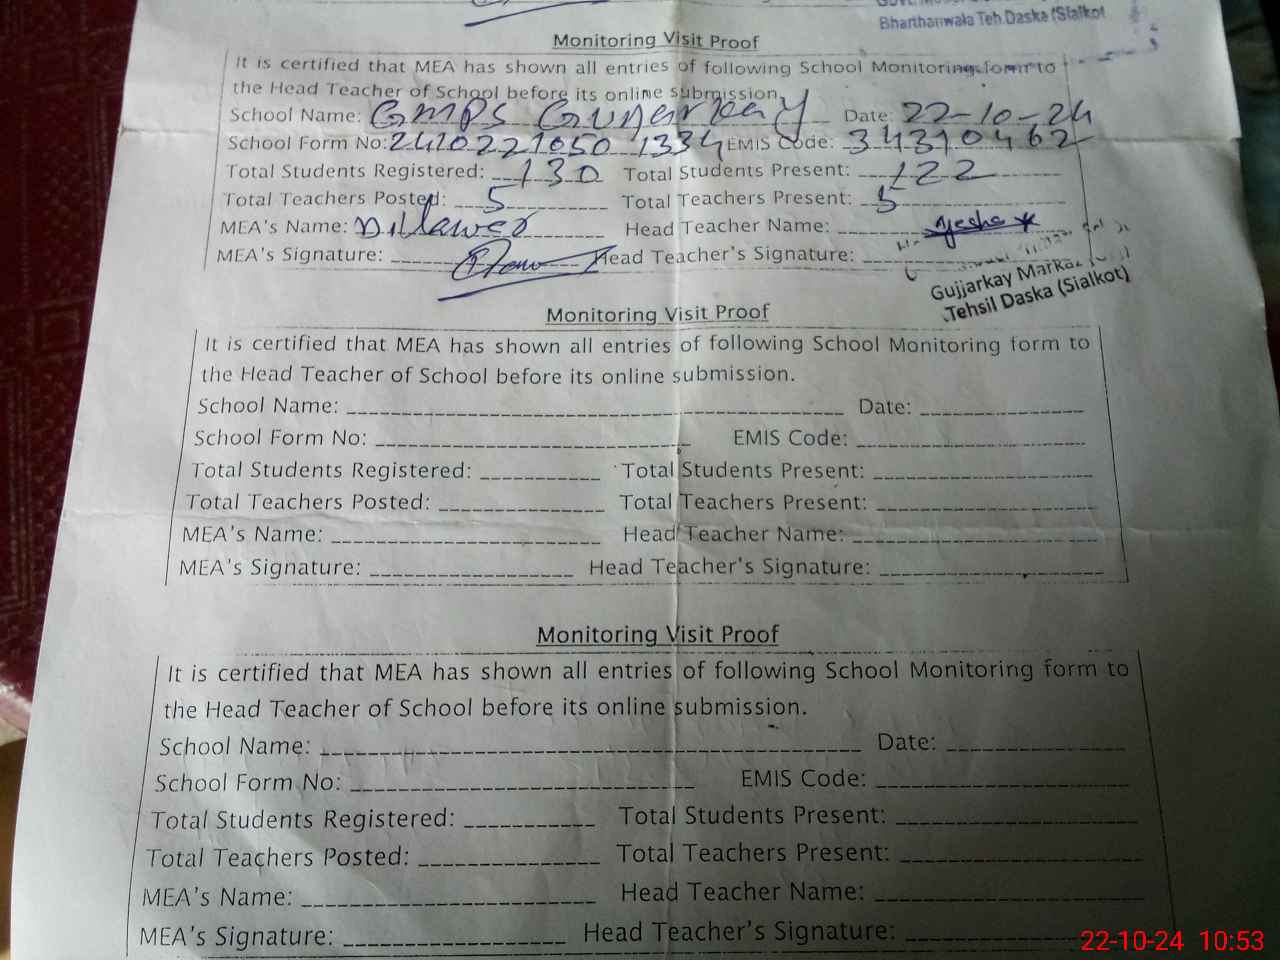 Bharthanwala Teh.Daska (Sialkot
Monitoring Visit Proof
It is certified that MEA has shown all entries of following School Monitoring form to
the Head Teacher of School before its online submission.
School Name: GMPS Gujarkay Date: 22-10-24
School Form No: 2410221050 1334 EMIS Code: 34310462
Total Students Registered: 130 Total Students Present: 122
Total Teachers Posted: 5 Total Teachers Present: 5
MEA's Name: Dillawer Head Teacher Name: Ayesha
MEA's Signature: Head Teacher's Signature:
Gujjarkay Markaz
Tehsil Daska (Sialkot)
Monitoring Visit Proof
It is certified that MEA has shown all entries of following School Monitoring form to
the Head Teacher of School before its online submission.
School Name: Date:
School Form No: EMIS Code:
Total Students Registered: Total Students Present:
Total Teachers Posted: Total Teachers Present:
MEA's Name: Head Teacher Name:
MEA's Signature: Head Teacher's Signature:
Monitoring Visit Proof
It is certified that MEA has shown all entries of following School Monitoring form to
the Head Teacher of School before its online submission.
School Name: Date:
School Form No: EMIS Code:
Total Students Registered: Total Students Present:
Total Teachers Posted: Total Teachers Present:
MEA's Name: Head Teacher Name:
MEA's Signature: Head Teacher's Signature:
22-10-24 10:53